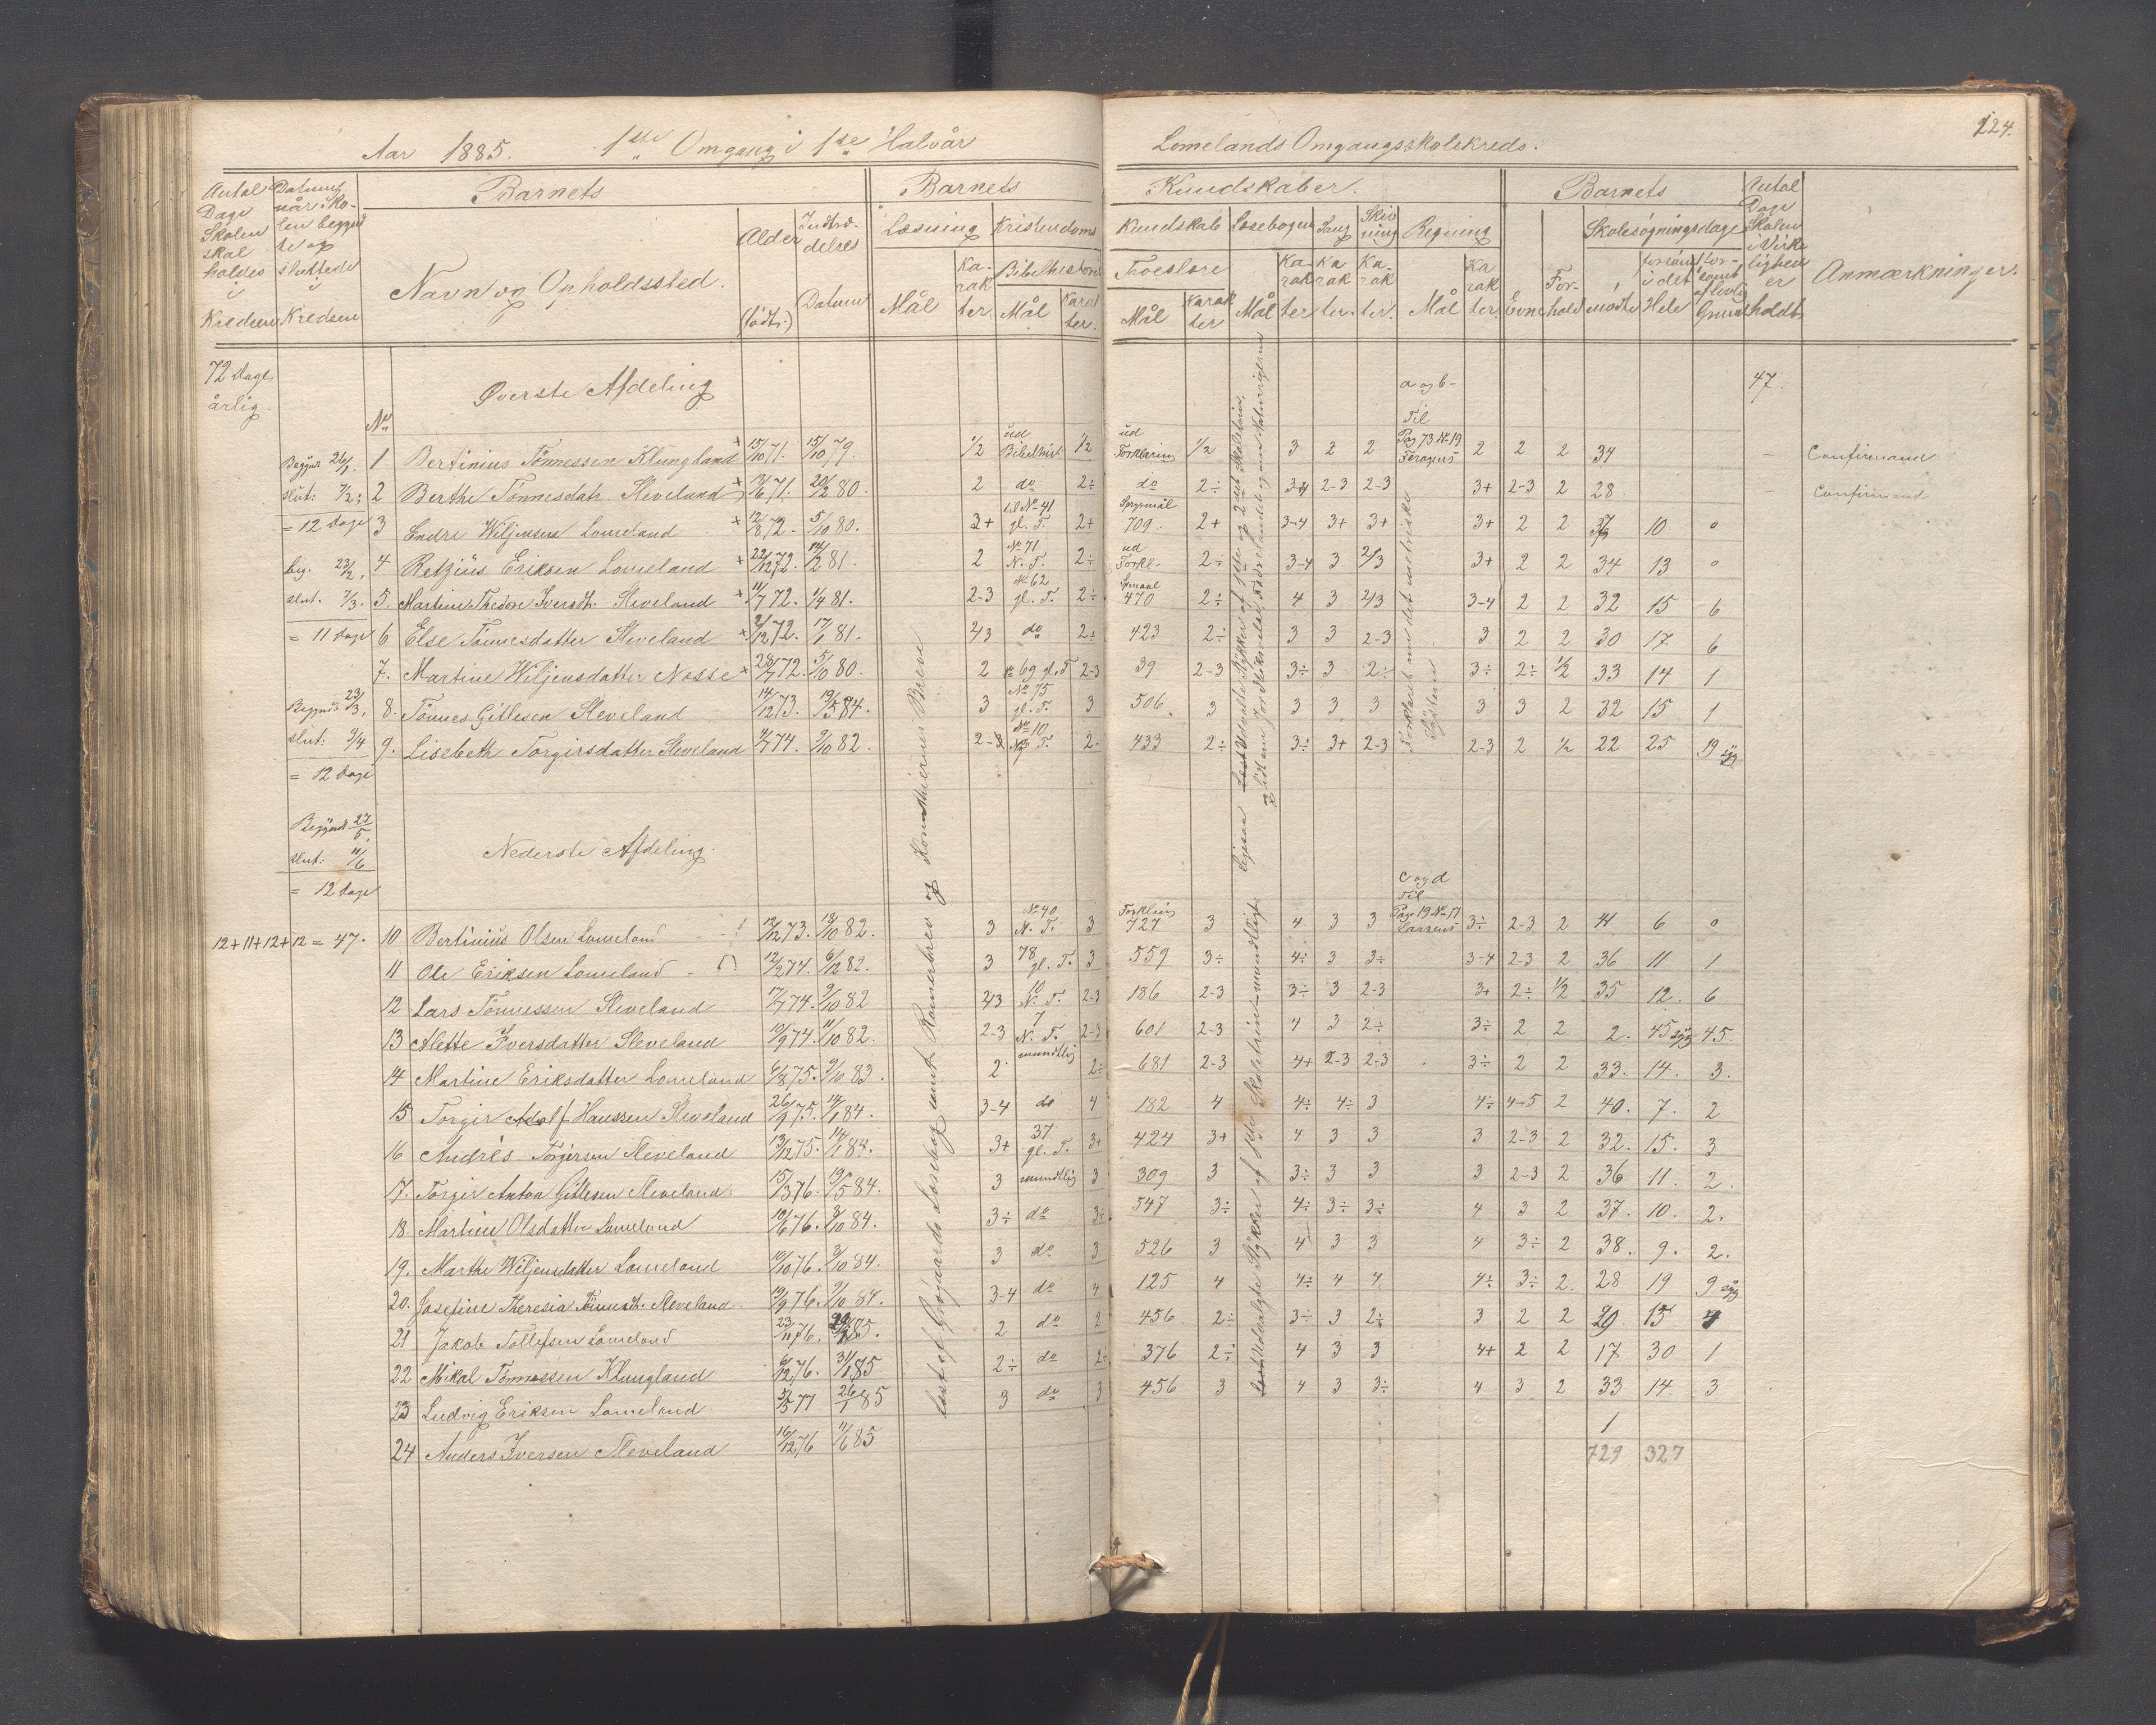 124.
Aar 1885. 1ste Omgang i 1ste Halvår Lomelands Omgangsskolekreds.
Antal Dage Skolen skal holdes i Kredsen
Datum når Skolen begyndte og sluttede i Kredsen
Barnets
Navn og Opholdssted.
Alder (født:)
Indtrædelses Datum
Barnets Kundskaber.
Læsning Mål Karakter
Kristendoms Kundskab
Bibelhistorie Mål Karakter
Troeslære Mål Karakter
Læsebogen Mål Karakter
Sang Karakter
Skrivning Karakter
Regning Mål Karakter
Barnets
Evne Forhold
Skolesøgningsdage
mødte forsømt i det Hele
Antal Dage Skolen i Virkelighed er holdt
Anmærkninger.
72 Dage årlig.
Øverste Afdeling
a og b - 47.
No
Til Pag 73 No 19
Begynt 26/1. 1 Bertinius Tönnessen Klungland + 15/10 71. 15/10 79. 1/2 ud Bibelhist 1/2 ud Forklaring 1/2 3 2 2 2 2 2 34 - Confirmand
slut: 7/2; 2 Berthe Tönnesdatr. Sleveland + 71. 20/2 80. 2 do 2÷ do 2÷ 3-4 2-3 2-3 3+ 2-3 2 28 - Confirmand
= 12 Dage 3 Endre Wiljensen Lomeland + 12/8 72. 5/10 80. 3+ til No 41 gl. T. 2+ Spørsmål 709. 2+ 3-4 3+ 3+ 3+ 2 2 37 10 0
beg. 23/2, 4 Retzius Eriksen Lomeland + 22/12 72. 14/2 81. 2 No 71 N. T. 2÷ ud Forkl. 2÷ 3-4 3 2/3 3+ 2 2 34 13 0
slut. 7/3. 5. Martine Thedore Iversdt. Sleveland + 11/7 72. 1/4 81. 2-3 No 62 gl. T. 2÷ 470 2÷ 4 3 2/3 3-4 2 2 32 15 6
= 11 Dage 6 Else Tönnesdatter Sleveland + 2/12 72. 17/1 81. 2/3 do 2÷ 423 2÷ 3 3 2-3 3 2 2 30 17. 6
7. Martine Wiljensdatter Nosse + 72. 5/10 80. 2 69 gl. T 2-3 39 2-3 3÷ 3 2÷ 3÷ 2÷ 1/2 33 14 1
Begyndt 23/3, 8. Tönnes Gitlesen Sleveland 14/12 73. 19/5 84. 3 No 75 gl. T. 3 506. 3 3 3 3 3 3 2 32 15 1
slut. 3/4 9. Lisebeth Torgirsdatter Sleveland 4/7 74. 9/10 82. 2-3 No 10 T. 2- 433 2÷ 3÷ 3+ 2-3 2-3 2 1/2 22 25 19 syg
= 12 Dage
Begyndt 27/5.
slut: 11/6
= 12 Dage
Nederste Afdeling.
c og d
Til Pag 19 No 17 Larsens
12+11+12+12 = 47. 10 Bertinius Olsen Lomeland 19/12 73. 18/10 82. 3 No 40 N. T. 3 Forklaring 727 3 4 3 3 3÷ 2-3 2 41 6 0
11 Ole Eriksen Lomeland 12/2 74. 6/12 82. 3 78 gl. T. 3 559 3÷ 4÷ 3 3÷ 3-4 2-3 2 36 11 1
12 Lars Tönnessen Sleveland 17/7 74. 9/10 82 2/3 10 N. T. 2-3 186 2-3 3÷ 3 2-3 3+ 2÷ 1/2 35 12. 6
13 Alette Iversdatter Sleveland 10/9 74. 11/10 82. 2-3 7 N. T. 2-3 601 2-3 4 3 2÷ 3÷ 2 2 2. 45 syg 45.
14 Martine Eriksdatter Lomeland 6/8 75. 9/10 83. 2 mundtlig 2÷ 681 2-3 4+ 2-3 2-3 3÷ 2 2 33. 14. 3.
15 Torgir Adolf Hanssen Sleveland 26/9 75. 14/1 84. 3-4 do 4 182 4 4÷ 4÷ 3 4÷ 4-5 2 40. 7. 2
16 Andrés Torgirsen Sleveland 13/12 75. 14/1 84. 3+ 37 gl. T. 3+ 424 3+ 4 3 3 3 2-3 2 32. 15. 3
17. Torgir Anton Gitlesen Sleveland 15/3 76. 19/5 84. 3 mundtlig 3 309 3 3÷ 3 3 3 2-3 2 36 11. 2.
18. Martine Olsdatter Lomeland 10/6 76. 3/10 84. 3÷ do 3÷ 547 3÷ 4÷ 3÷ 3÷ 4 3 2 37. 10. 2.
19. Marthe Wiljensdatter Lomeland 10/10 76. 3/10 84. 3 do 3 526 3 4 3 3 4 3÷ 2 38. 9. 2.
20. Josefine Theresia Tönnesdt. Sleveland 19/9 76. 9/10 84. 3-4 do 4 125 4 4÷ 4 4 4÷ 3÷ 2. 28 19 9 syg
21 Jakob Tollefsen Lomeland 23/11 76. 85. 2 do 2 456 2÷ 3÷ 3 2÷ 3 2 2 29. 15 4
22 Mikal Tönnessen Klungland 6/12 76. 31/1 85 2÷ do 2÷ 376 2÷ 4 3 3 4+ 2 2 17. 30 1
23 Ludvig Eriksen Lomeland 5/5 77 26/1 85 3 do 3 456 3 4 3 3÷ 4 3 2 33 14 3
24 Anders Iversen Sleveland 16/12 76 11/6 85 1
729 327
Læst af Grøgaards Læsebog samt Romerbrev og Korinthiernes Breve
Lejson Udvalgte Stykker af 1ste og 2det Skoletrin,
og lidt om Jordbiskrivelse, Fædrelandet og om Naturrigerne
Udvalgte Stykker af 1ste Skoletrin - mundtlig.
Forklaret om det metriske System